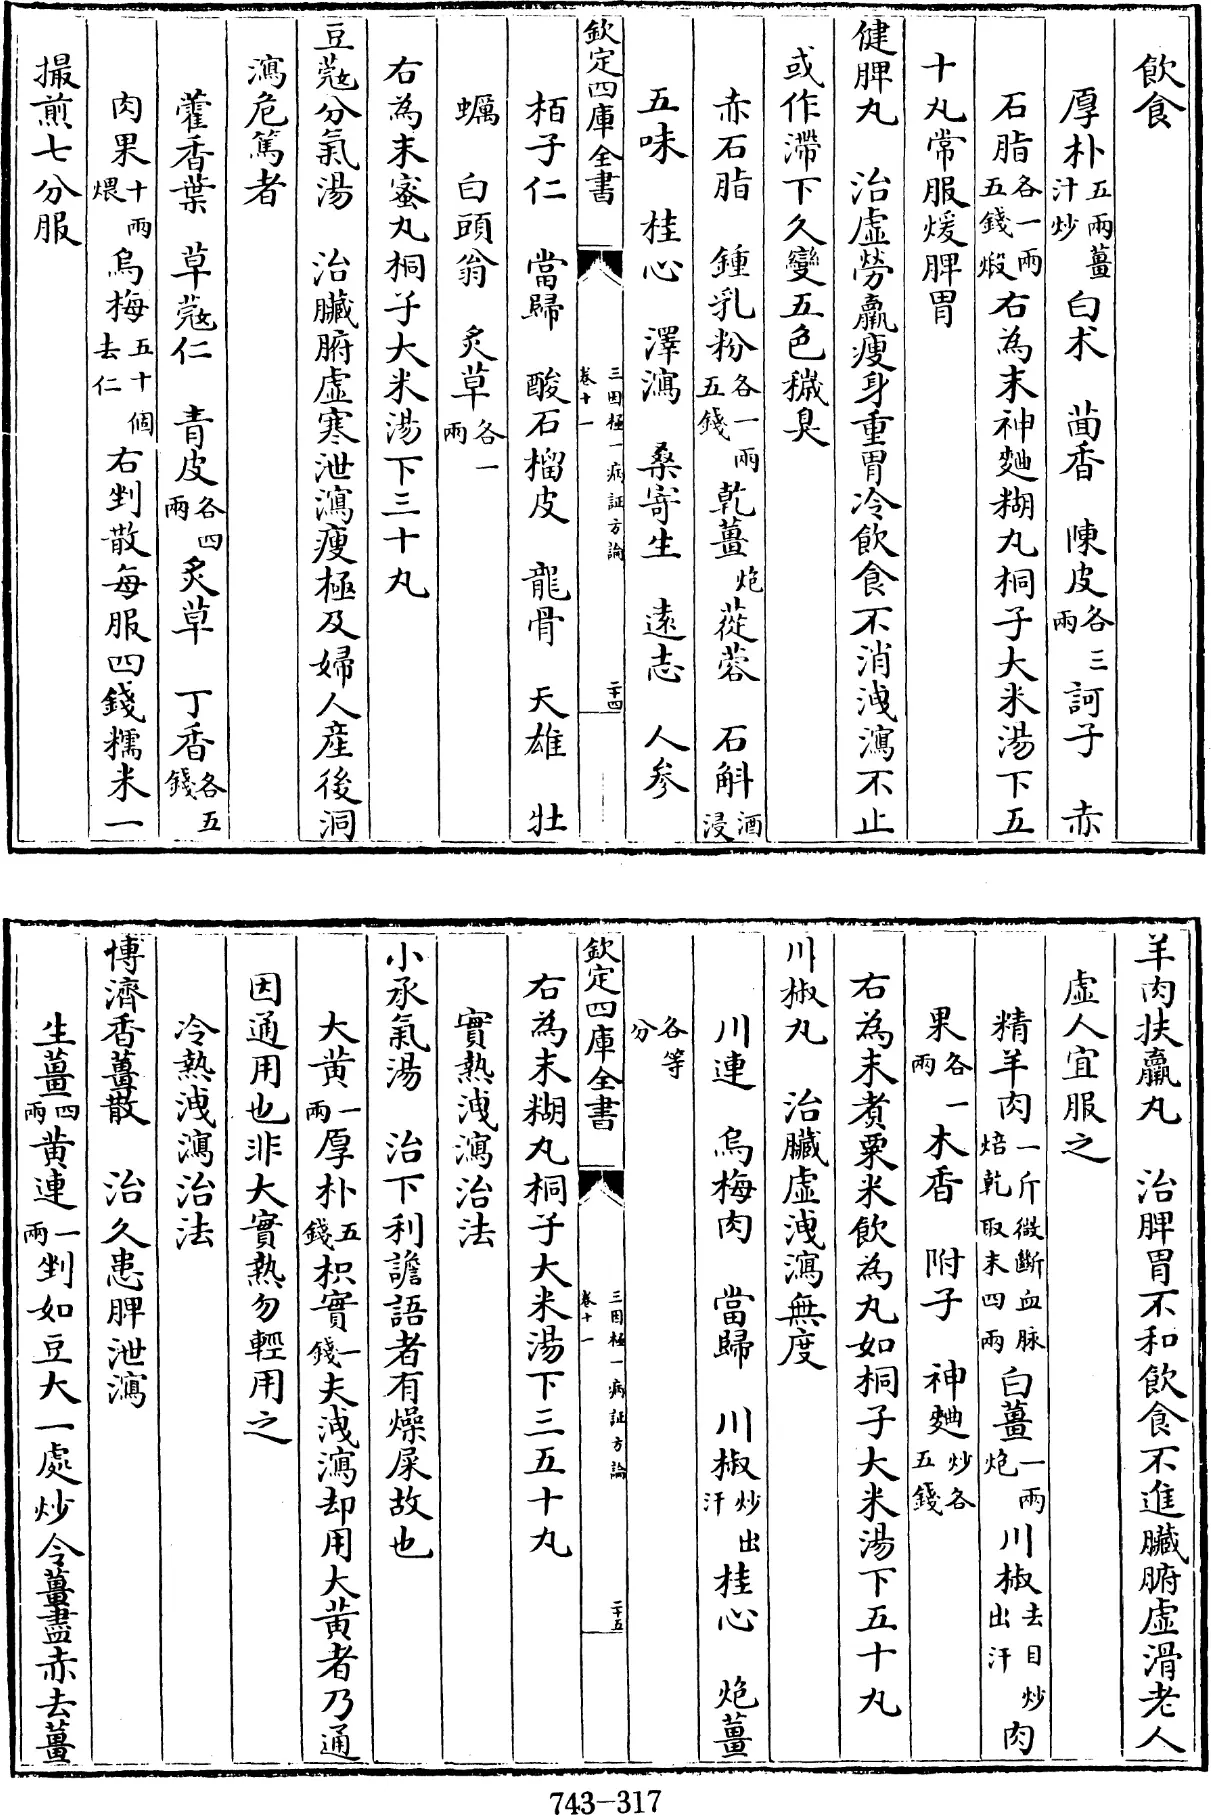 飲食
厚朴五兩薑汁炒白朮 茴香 陳皮各三兩訶子 赤
石脂各一兩五錢煅右為末神麯糊丸桐子大米湯下五
十丸常服煖脾胃
健脾丸 治虛勞羸瘦身重胃冷飲食不消洩瀉不止
或作滯下久變五色穢臭
赤石脂 鍾乳粉各一兩五錢乾薑炮蓯蓉 石斛酒浸
五味 桂心 澤瀉 桑寄生 遠志 人參
欽定四庫全書
三因極一病証方論
卷十一
二十四
栢子仁 當歸 酸石榴皮 龍骨 天雄 牡
蠣 白頭翁 炙草各一兩
右為末蜜丸桐子大米湯下三十丸
豆蔻分氣湯 治臟腑虛寒泄瀉瘦極及婦人産後洞
瀉危篤者
藿香葉 草蔻仁 青皮各四兩炙草 丁香各五錢
肉果十兩煨烏梅五十個去仁右剉散每服四錢糯米一
撮煎七分服
羊肉扶羸丸 治脾胃不和飲食不進臟腑虛滑老人
虛人宜服之
精羊肉一斤微斷血脉焙乾取末四兩白薑一兩炮川椒去目炒出汗肉
果各一兩木香 附子 神麯炒各五錢
右為末煑粟米飲為丸如桐子大米湯下五十丸
川椒丸 治臟虛洩瀉無度
川連 烏梅肉 當歸 川椒炒出汗桂心 炮薑
各等分
欽定四庫全書
三因極一病証方論
卷十一
二十五
右為末糊丸桐子大米湯下三五十丸
實熱洩瀉治法
小承氣湯 治下利譫語者有燥屎故也
大黄一兩厚朴五錢枳實一錢夫洩瀉却用大黄者乃通
因通用也非大實熱勿輕用之
冷熱洩瀉治法
博濟香薑散 治久患脾泄瀉
生薑四兩黄連一兩剉如豆大一處炒令薑盡赤去薑
743-317